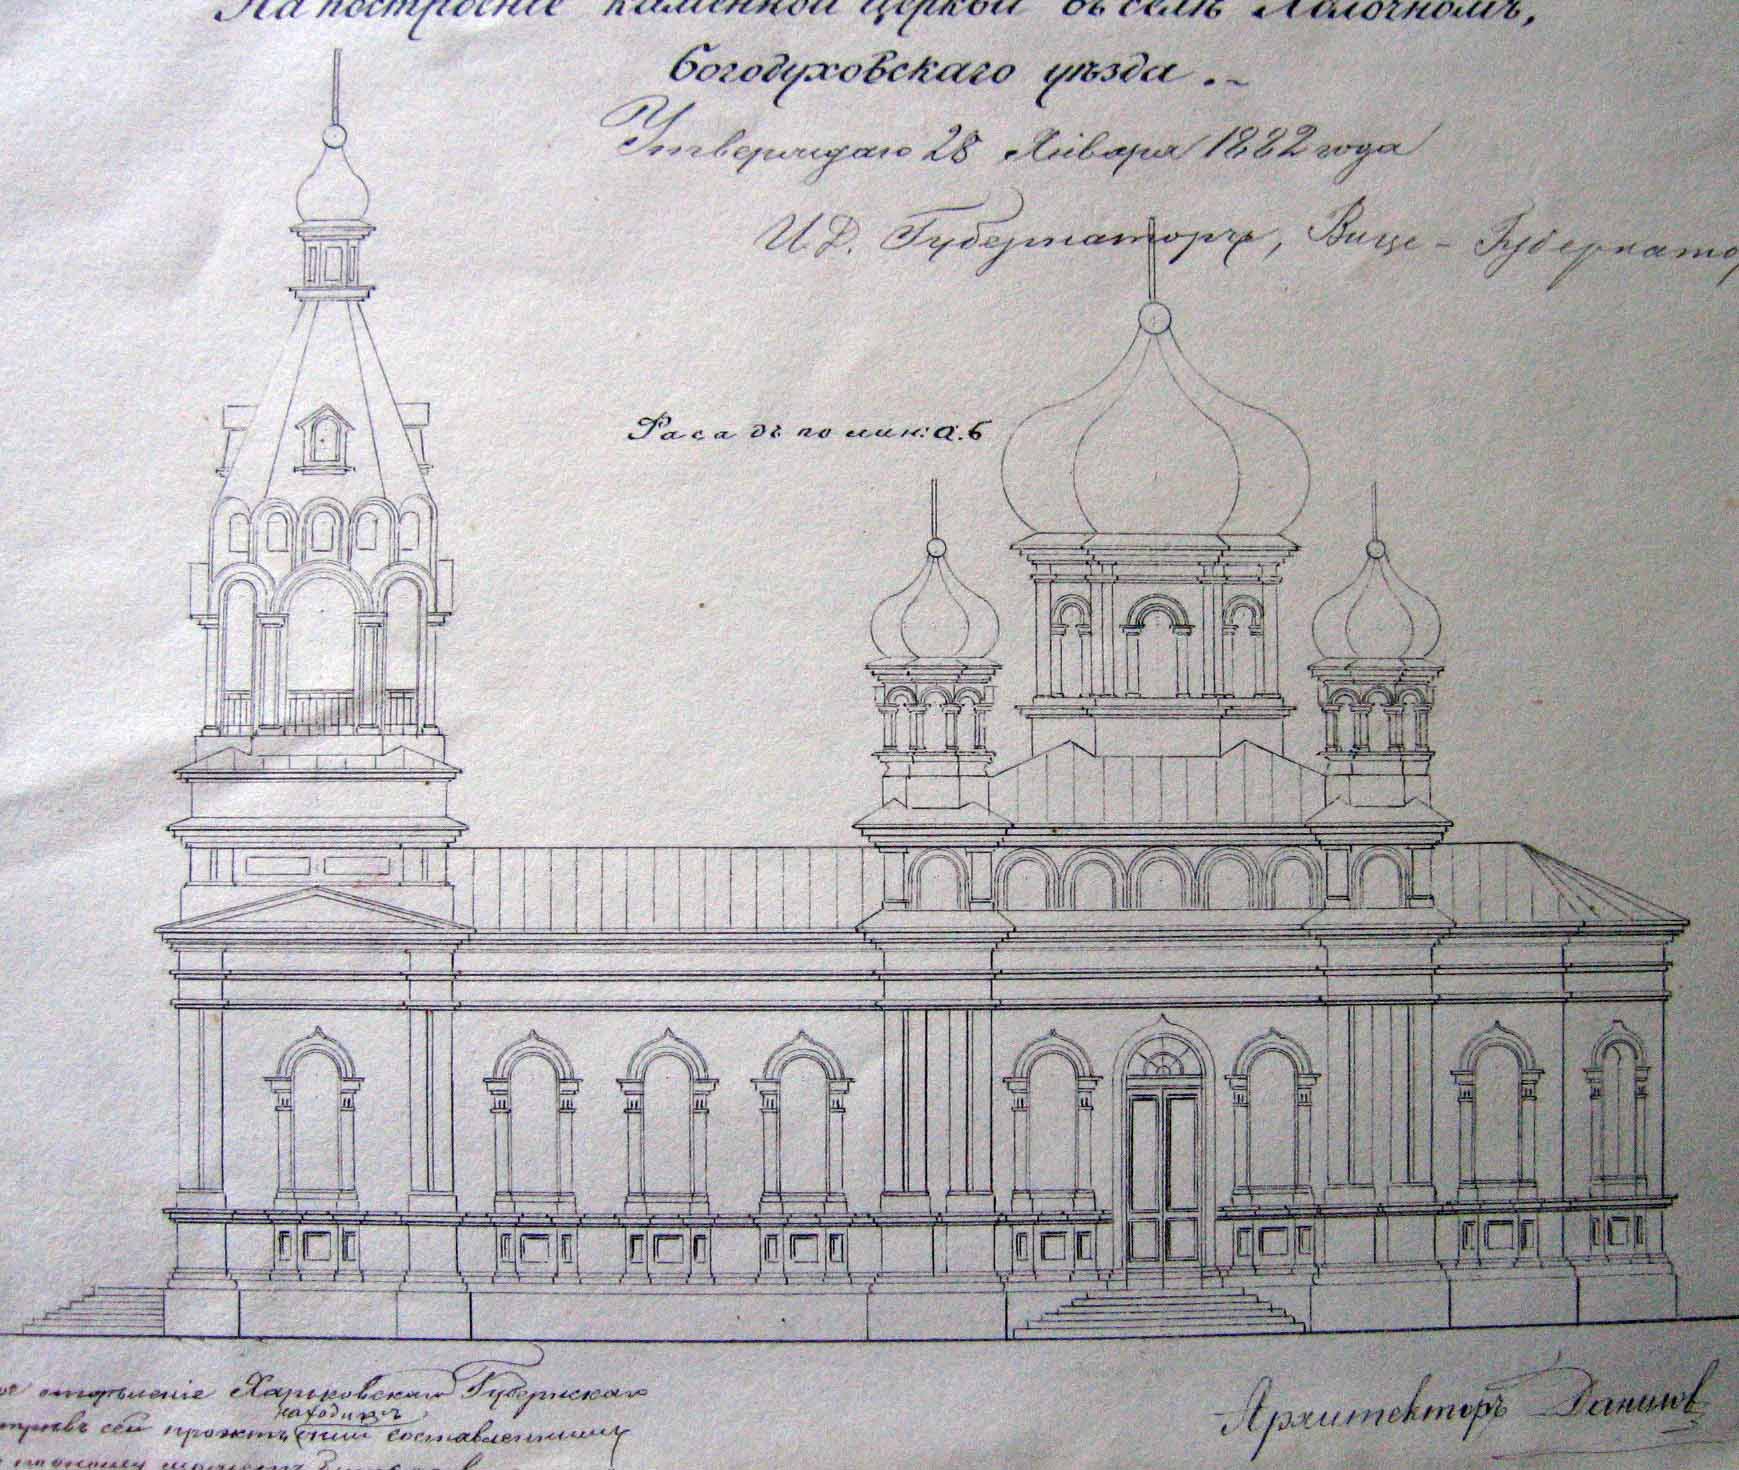 На построеніе каменной церкви въ селѣ Колочномъ,
богодуховскаго уѣзда.
Утверждаю 28 Января 1882 года
И. Д. Губернаторъ, Вице-Губернатор
Фасадъ по лин: а. б
отдѣленіе Харьковскаго Губернскаго
находитъ
сей проэктъ составленнымъ
Архитекторъ Данилов